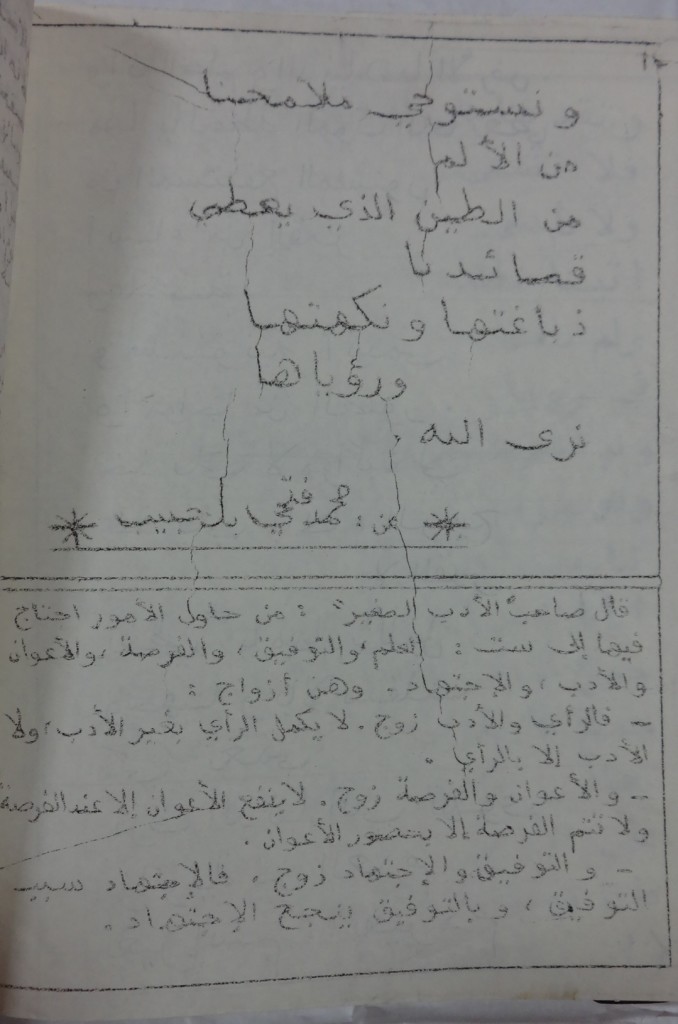 ١٢
و نستوحي ملامحنا
من الألم
من الطين الذي يعطي
قصائدنا
دباغتها و نكهتها
ورؤياها
نرى الله .
من : محمد فتحي بلحبيب
قال صاحب "الأدب الصغير" : من حاول الأمور احتاج
فيها إلى ست : العلم، والتوفيق ، والفرصة ، والأعوان
والأدب ، والإجتهاد . وهن أزواج :
- فالرأي والأدب زوج . لا يكمل الرأي بغير الأدب ، ولا
الأدب إلا بالرأي .
- والأعوان والفرصة زوج . لا ينفع الأعوان إلا عند الفرصة
ولا تتم الفرصة إلا بحضور الأعوان .
- و التوفيق والإجتهاد زوج . فالإجتهاد سبب
التوفيق ، و بالتوفيق ينجح الإجتهاد .